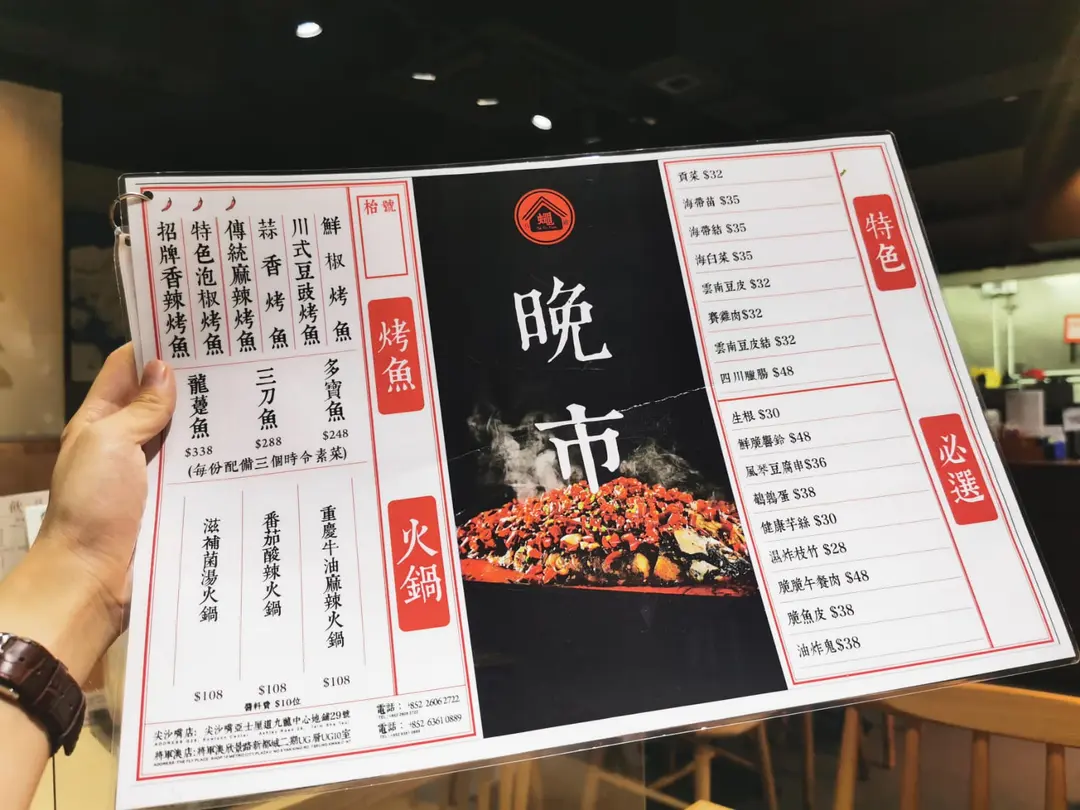 枱號
烤魚
鮮椒烤魚
川式豆豉烤魚
蒜香烤魚
傳統麻辣烤魚
特色泡椒烤魚
招牌香辣烤魚
多寶魚
$248
三刀魚
$288
龍躉魚
$338
(每份配備三個時令素菜)
火鍋
重慶牛油麻辣火鍋
$108
番茄酸辣火鍋
$108
滋補菌湯火鍋
$108
醬料費 $10位
尖沙嘴店: 尖沙嘴亞士厘道九龍中心地鋪29號
電話: +852 2606 2722
將軍澳店: 將軍澳欣景路新都城二期UG層UG10室
電話: +852 6361 0889
蠅
晚市
特色
貢菜 $32
海帶苗 $35
海帶結 $35
海白菜 $35
雲南豆皮 $32
賽雞肉$32
雲南豆皮結 $32
四川臘腸 $48
必選
生根 $30
鮮脆響鈴 $48
風琴豆腐串$36
鵪鶉蛋 $38
健康芋絲 $30
濕炸枝竹 $28
脆脆午餐肉 $48
脆魚皮 $38
油炸鬼$38